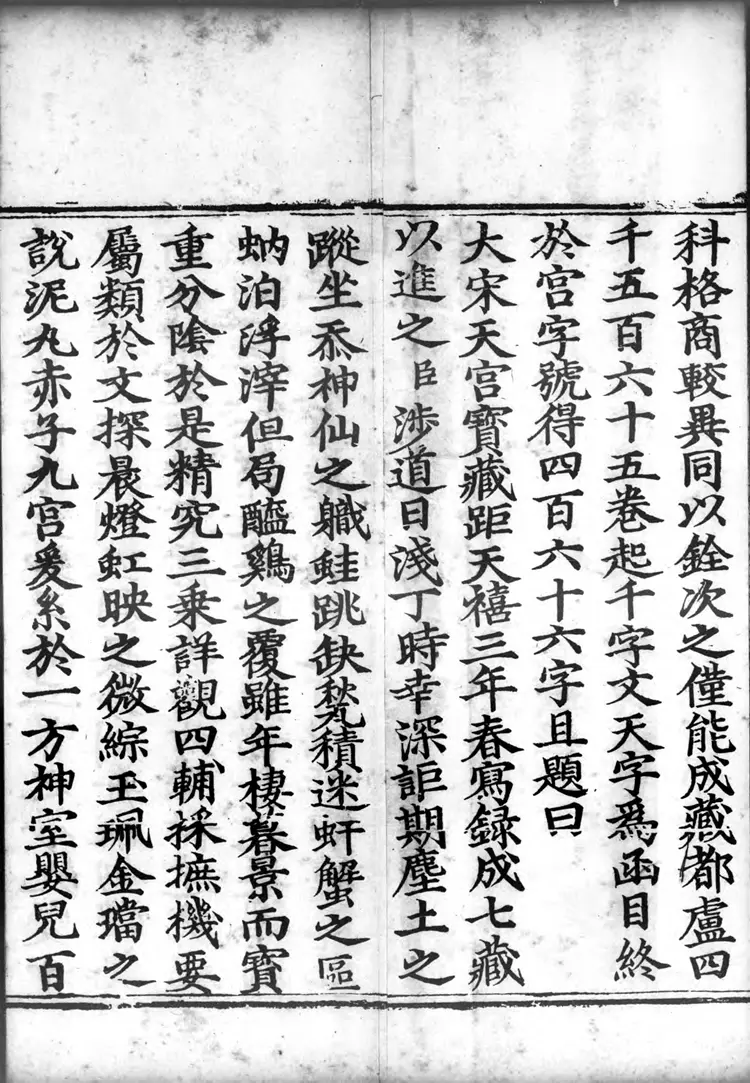 科格商較異同以銓次之僅能成藏都盧四
千五百六十五卷起千字文天字爲函目終
於宮字號得四百六十六字且題曰
大宋天宮寶藏距天禧三年春寫録成七藏
以進之臣涉道日淺丁時幸深詎期塵土之
蹤坐忝神仙之軄蛙跳缺甃積迷虷蟹之區
蚋泊浮滓但局醯鷄之覆雖年棲暮景而寶
重分陰於是精究三乗詳觀四輔採摭機要
屬類於文探晨燈虹映之微綜玉珮金璫之
說泥丸赤子九宮爰系於一方神室嬰兒百